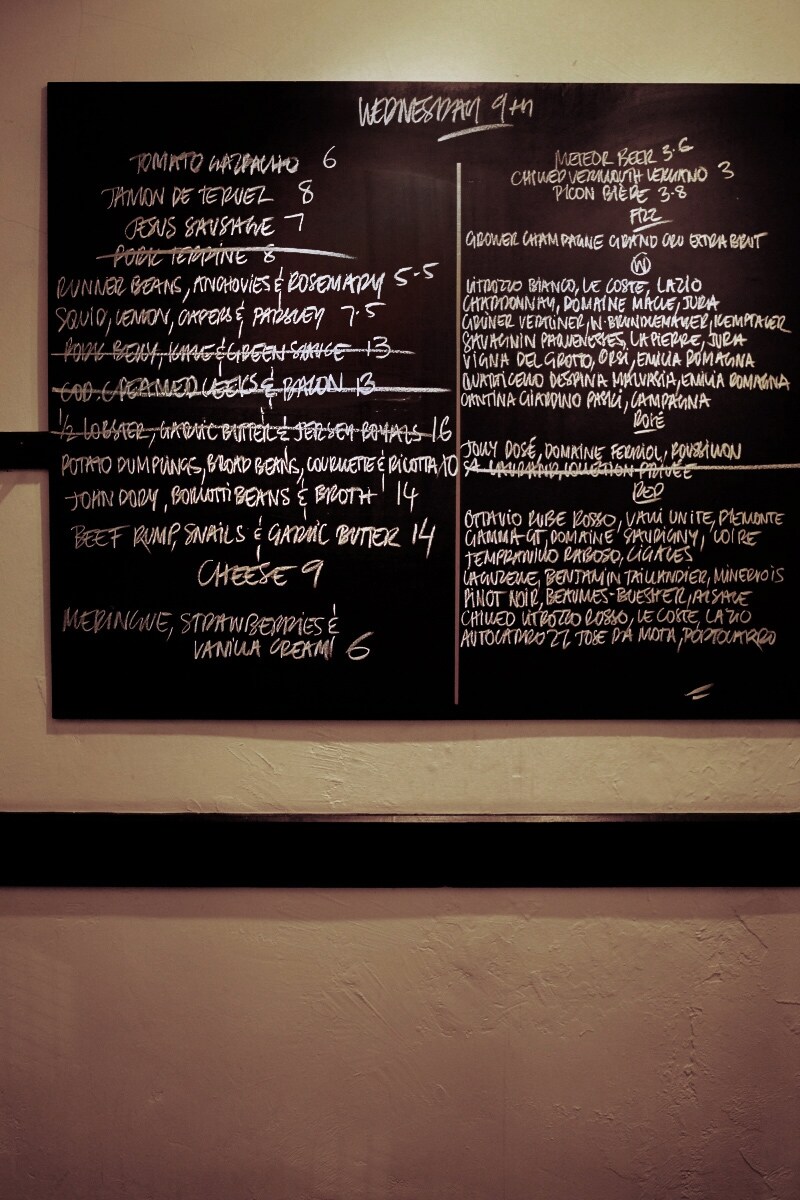 WEDNESDAY 9TH
TOMATO GAZPACHO 6
JAMON DE TERUEL 8
JESUS SAUSAGE 7
PORK TERRINE 8
RUNNER BEANS, ANCHOVIES & ROSEMARY 5.5
SQUID, LEMON, CAPERS & PARSLEY 7.5
PORK BELLY, KALE & GREEN SAUCE 13
COD, CREAMED LEEKS & BACON 13
1/2 LOBSTER, GARLIC BUTTER & JERSEY ROYALS 16
POTATO DUMPLINGS, BROAD BEANS, COURGETTE & RICOTTA 10
JOHN DORY, BORLOTTI BEANS & BROTH 14
BEEF RUMP, SNAILS & GARLIC BUTTER 14
CHEESE 9
MERINGUE, STRAWBERRIES &
VANILLA CREAM 6
METEOR BEER 3.6
CHILLED VERMOUTH VERMANO 3
PICON BIÈRE 3.8
FIZZ
GROWER CHAMPAGNE GRAND CRU EXTRA BRUT
W
LITROZZO BIANCO, LE COSTE, LAZIO
CHARDONNAY, DOMAINE MACLE, JURA
GRÜNER VELTLINER, BRÜNDLEMAYER, KEMPTALER
SAVAGNIN, LAPIERRE, JURA
VIGNA DEL GROTTO, ORSI, EMILIA ROMAGNA
QUARTICELLO DESPINA MALVASIA, EMILIA ROMAGNA
CANTINA GIARDINO PASKI, CAMPAGNA
ROSÉ
JOLLY DOSÉ, DOMAINE FERRIOL, ROUSILLON
COLLECTION PRIVÉE
RED
OTTAVIO RUBE ROSSO, VALLI UNITE, PIEMONTE
GAMMA-GT, DOMAINE SAURIGNY, LOIRE
TEMPRANILLO RABOSO, CIGALES
LAGUZELLE, BENJAMIN TAILLANDIER, MINERVOIS
PINOT NOIR, BEAUMES-BUESHER, ALSACE
CHILLED LITROZZO ROSSO, LE COSTE, LAZIO
AUTOCARRO 27, JOSE DA MOTA, PORTOCARRO